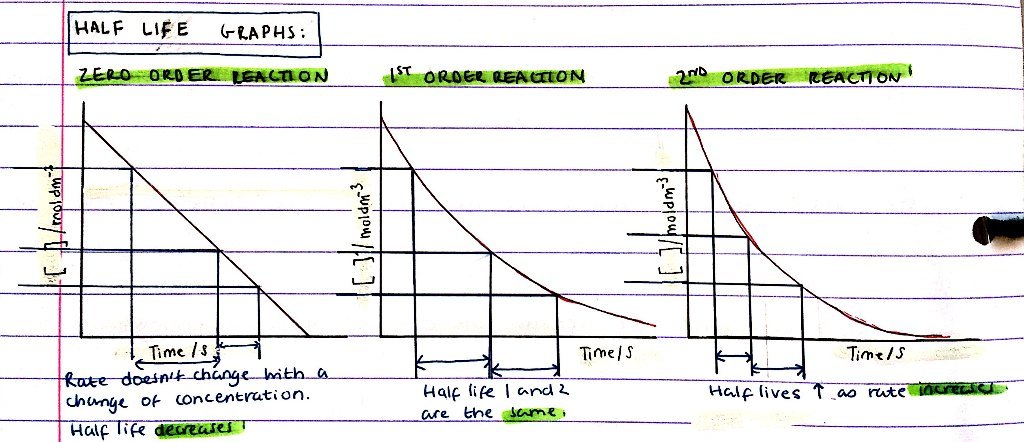 HALF LIFE GRAPHS:
ZERO ORDER REACTION
[ ]/moldm⁻³
Time/s
Rate doesn't change with a
change of concentration.
Half life decreases!
1ST ORDER REACTION
[ ]/moldm⁻³
Time/s
Half life 1 and 2
are the same.
2ND ORDER REACTION
[ ]/moldm⁻³
Time/s
Half lives ↑ as rate increases.